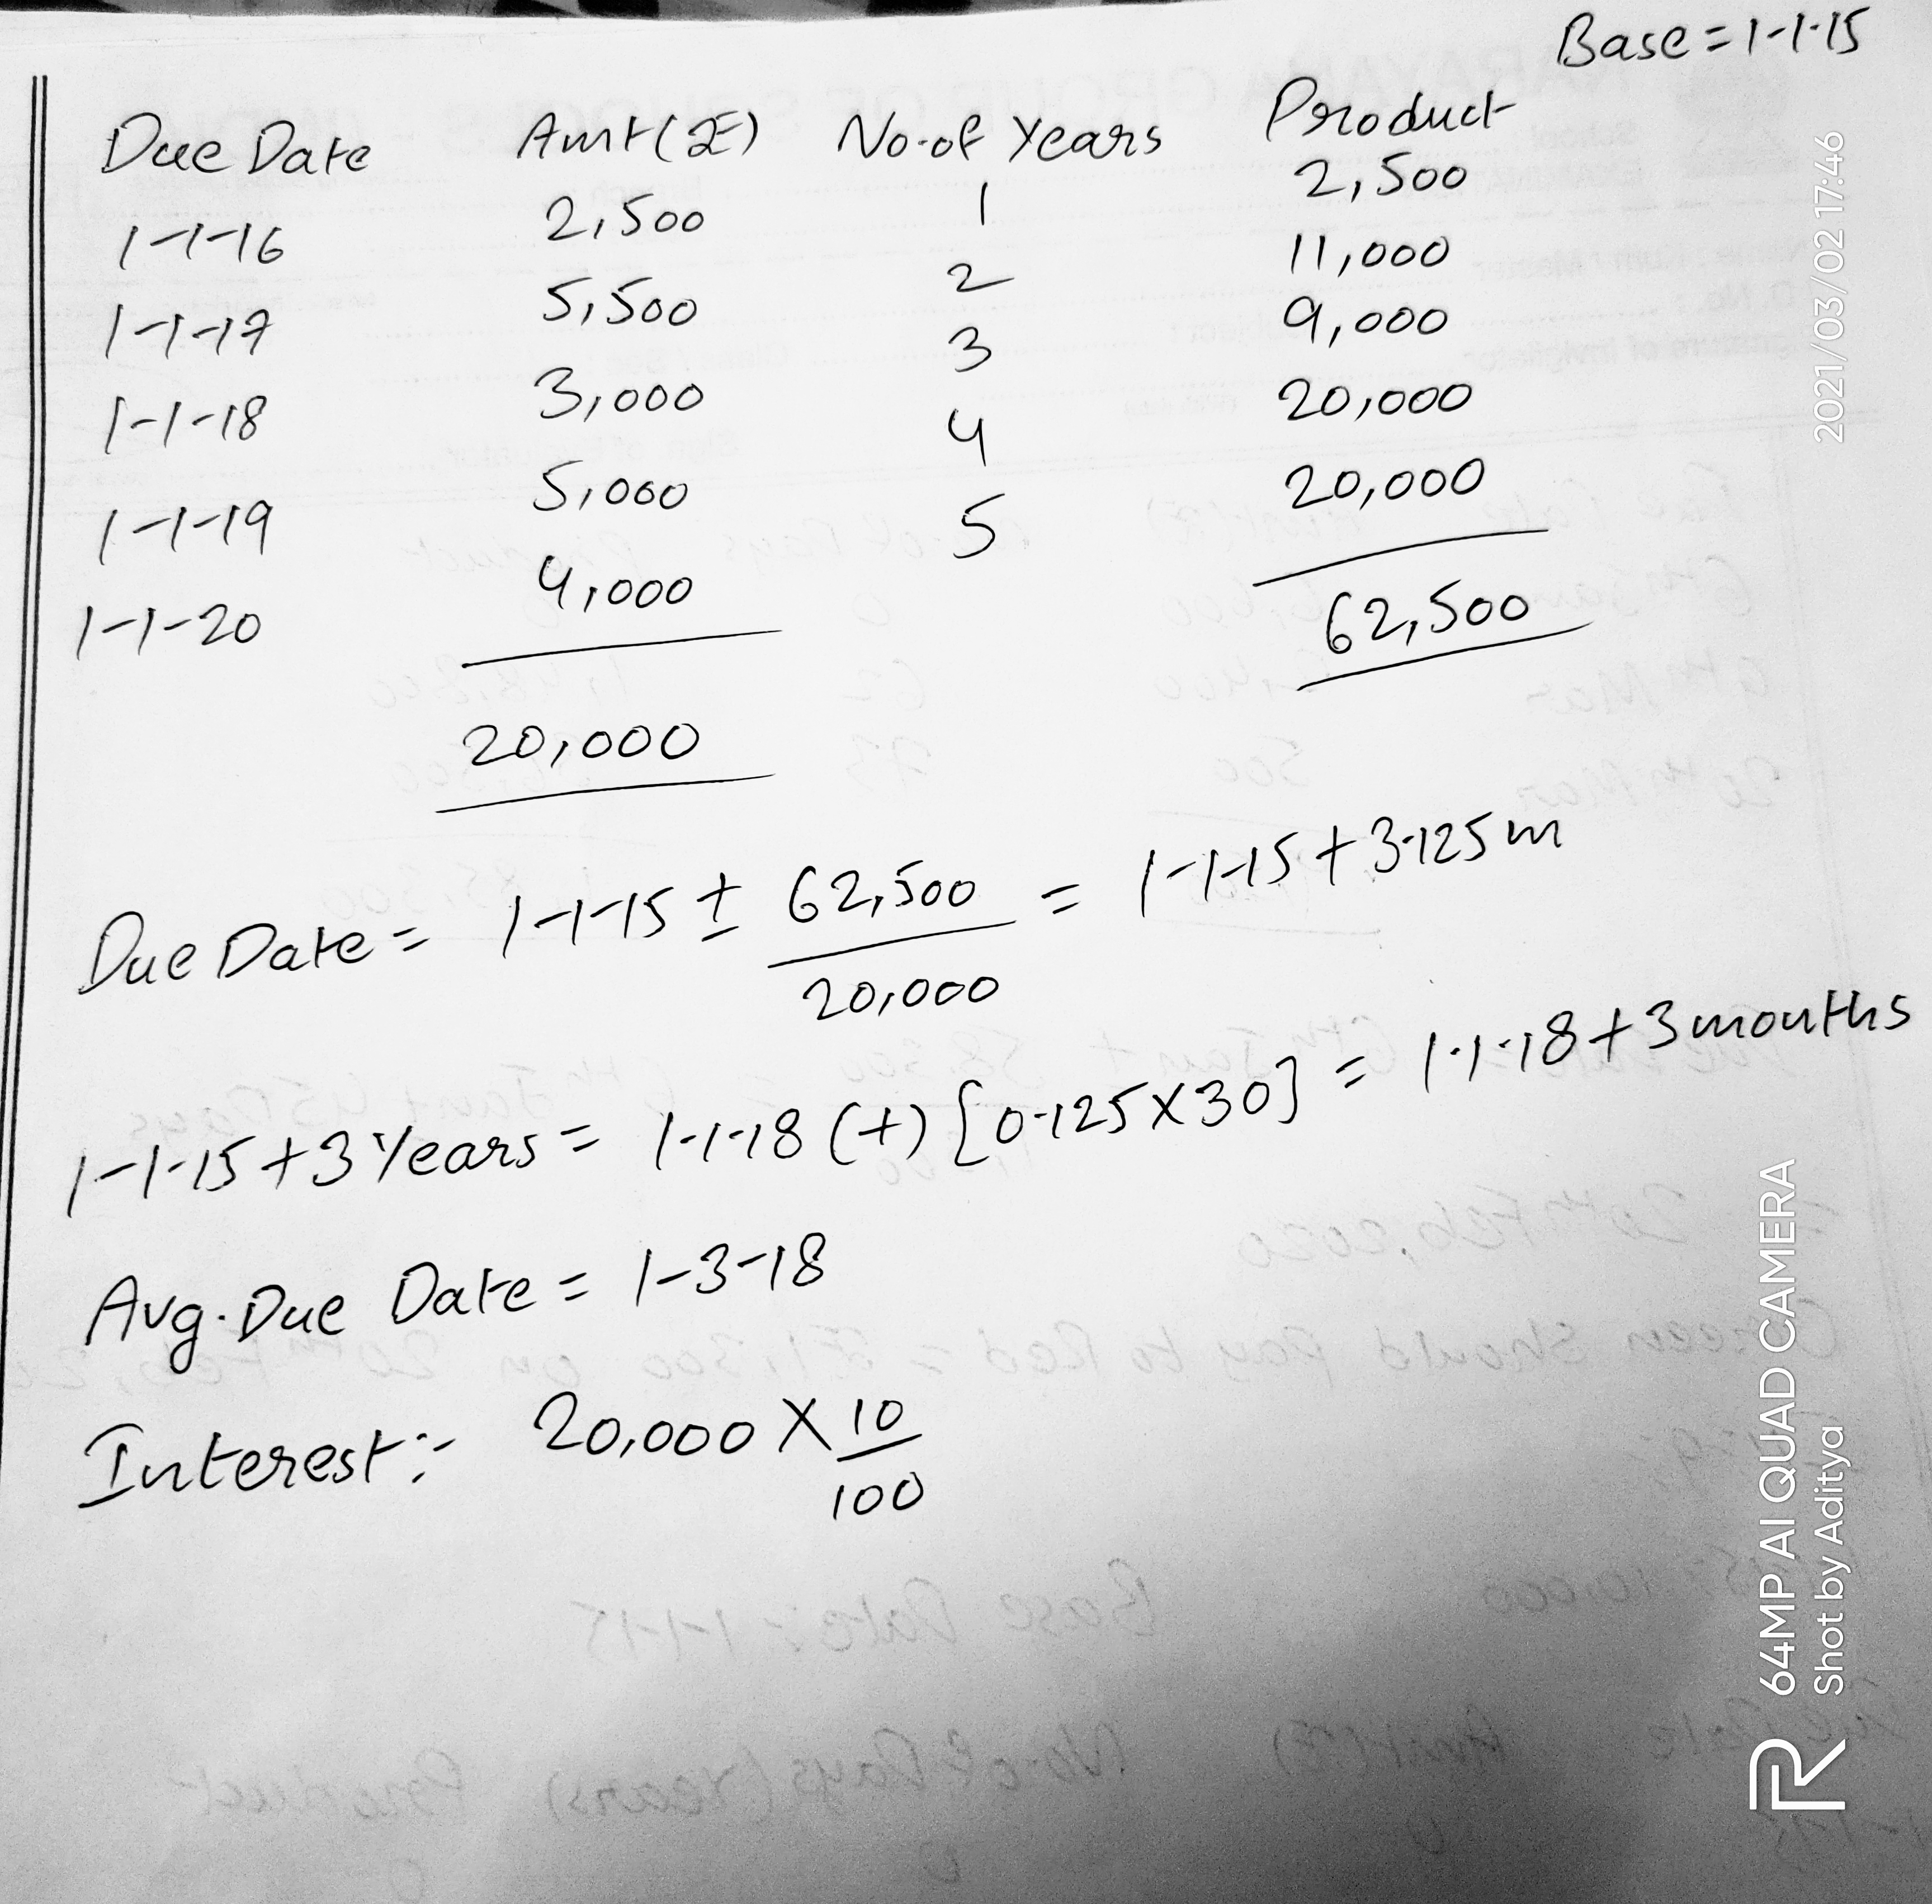 Base = 1-1-15
Due Date Amt(₹) No. of Years Product
1-1-16 2,500 1 2,500
1-1-17 5,500 2 11,000
1-1-18 3,000 3 9,000
1-1-19 5,000 4 20,000
1-1-20 4,000 5 20,000
20,000 62,500
Due Date = 1-1-15 ± 62,500/20,000 = 1-1-15 + 3.125 m
1-1-15 + 3 Years = 1-1-18 (+) [0.125 X 30] = 1-1-18 + 3 months
Avg. Due Date = 1-3-18
Interest:- 20,000 X 10/100
2021/03/02 17:46
64MP AI QUAD CAMERA
Shot by Aditya